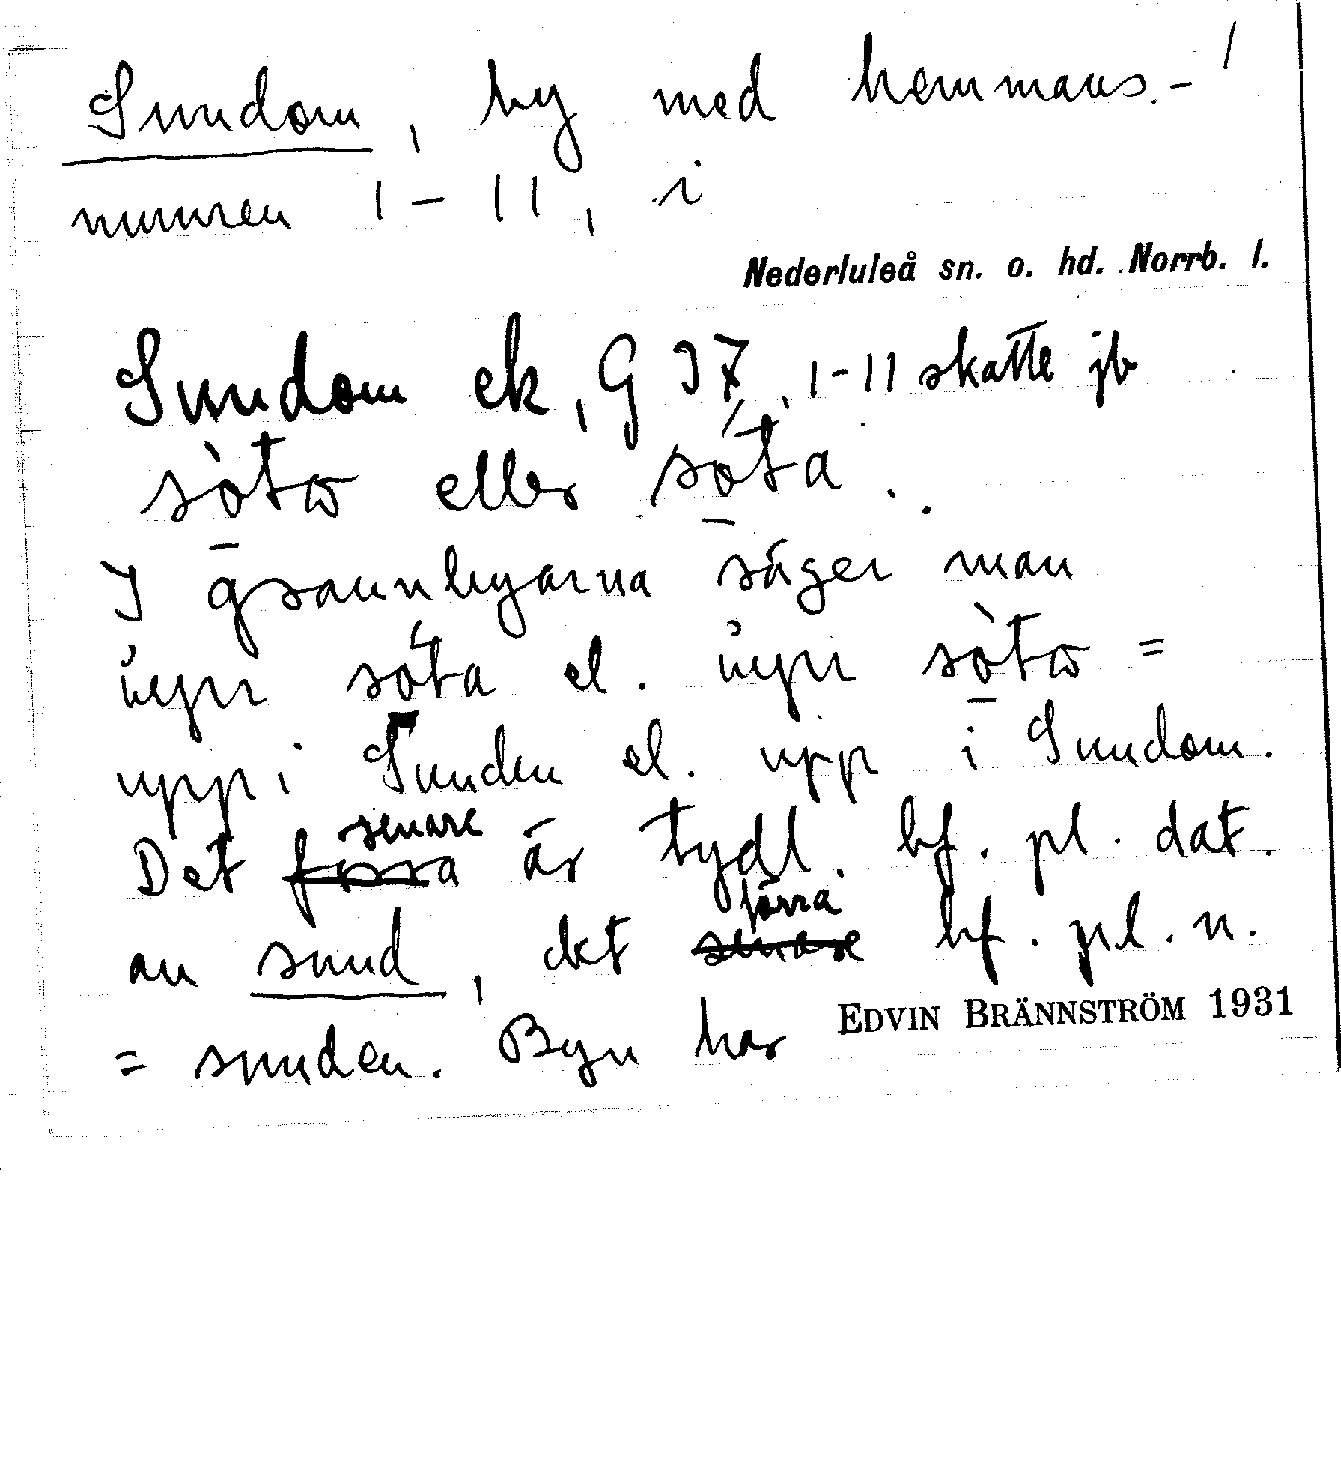 Sundom, by med hemmans- 1
numren 1-11, i
Nederluleå sn. o. hd. Norrb. l.
Sundom ek, G I7, 1-11 skatte jb
eller
I grannbyarna säger man
el.
upp i Sunden el. upp i Sundom.
Det förra senare är tydl. bf. pl. dat.
av sund, det senare förra bf. pl. n.
= sunden. Byn har
EDVIN BRÄNNSTRÖM 1931